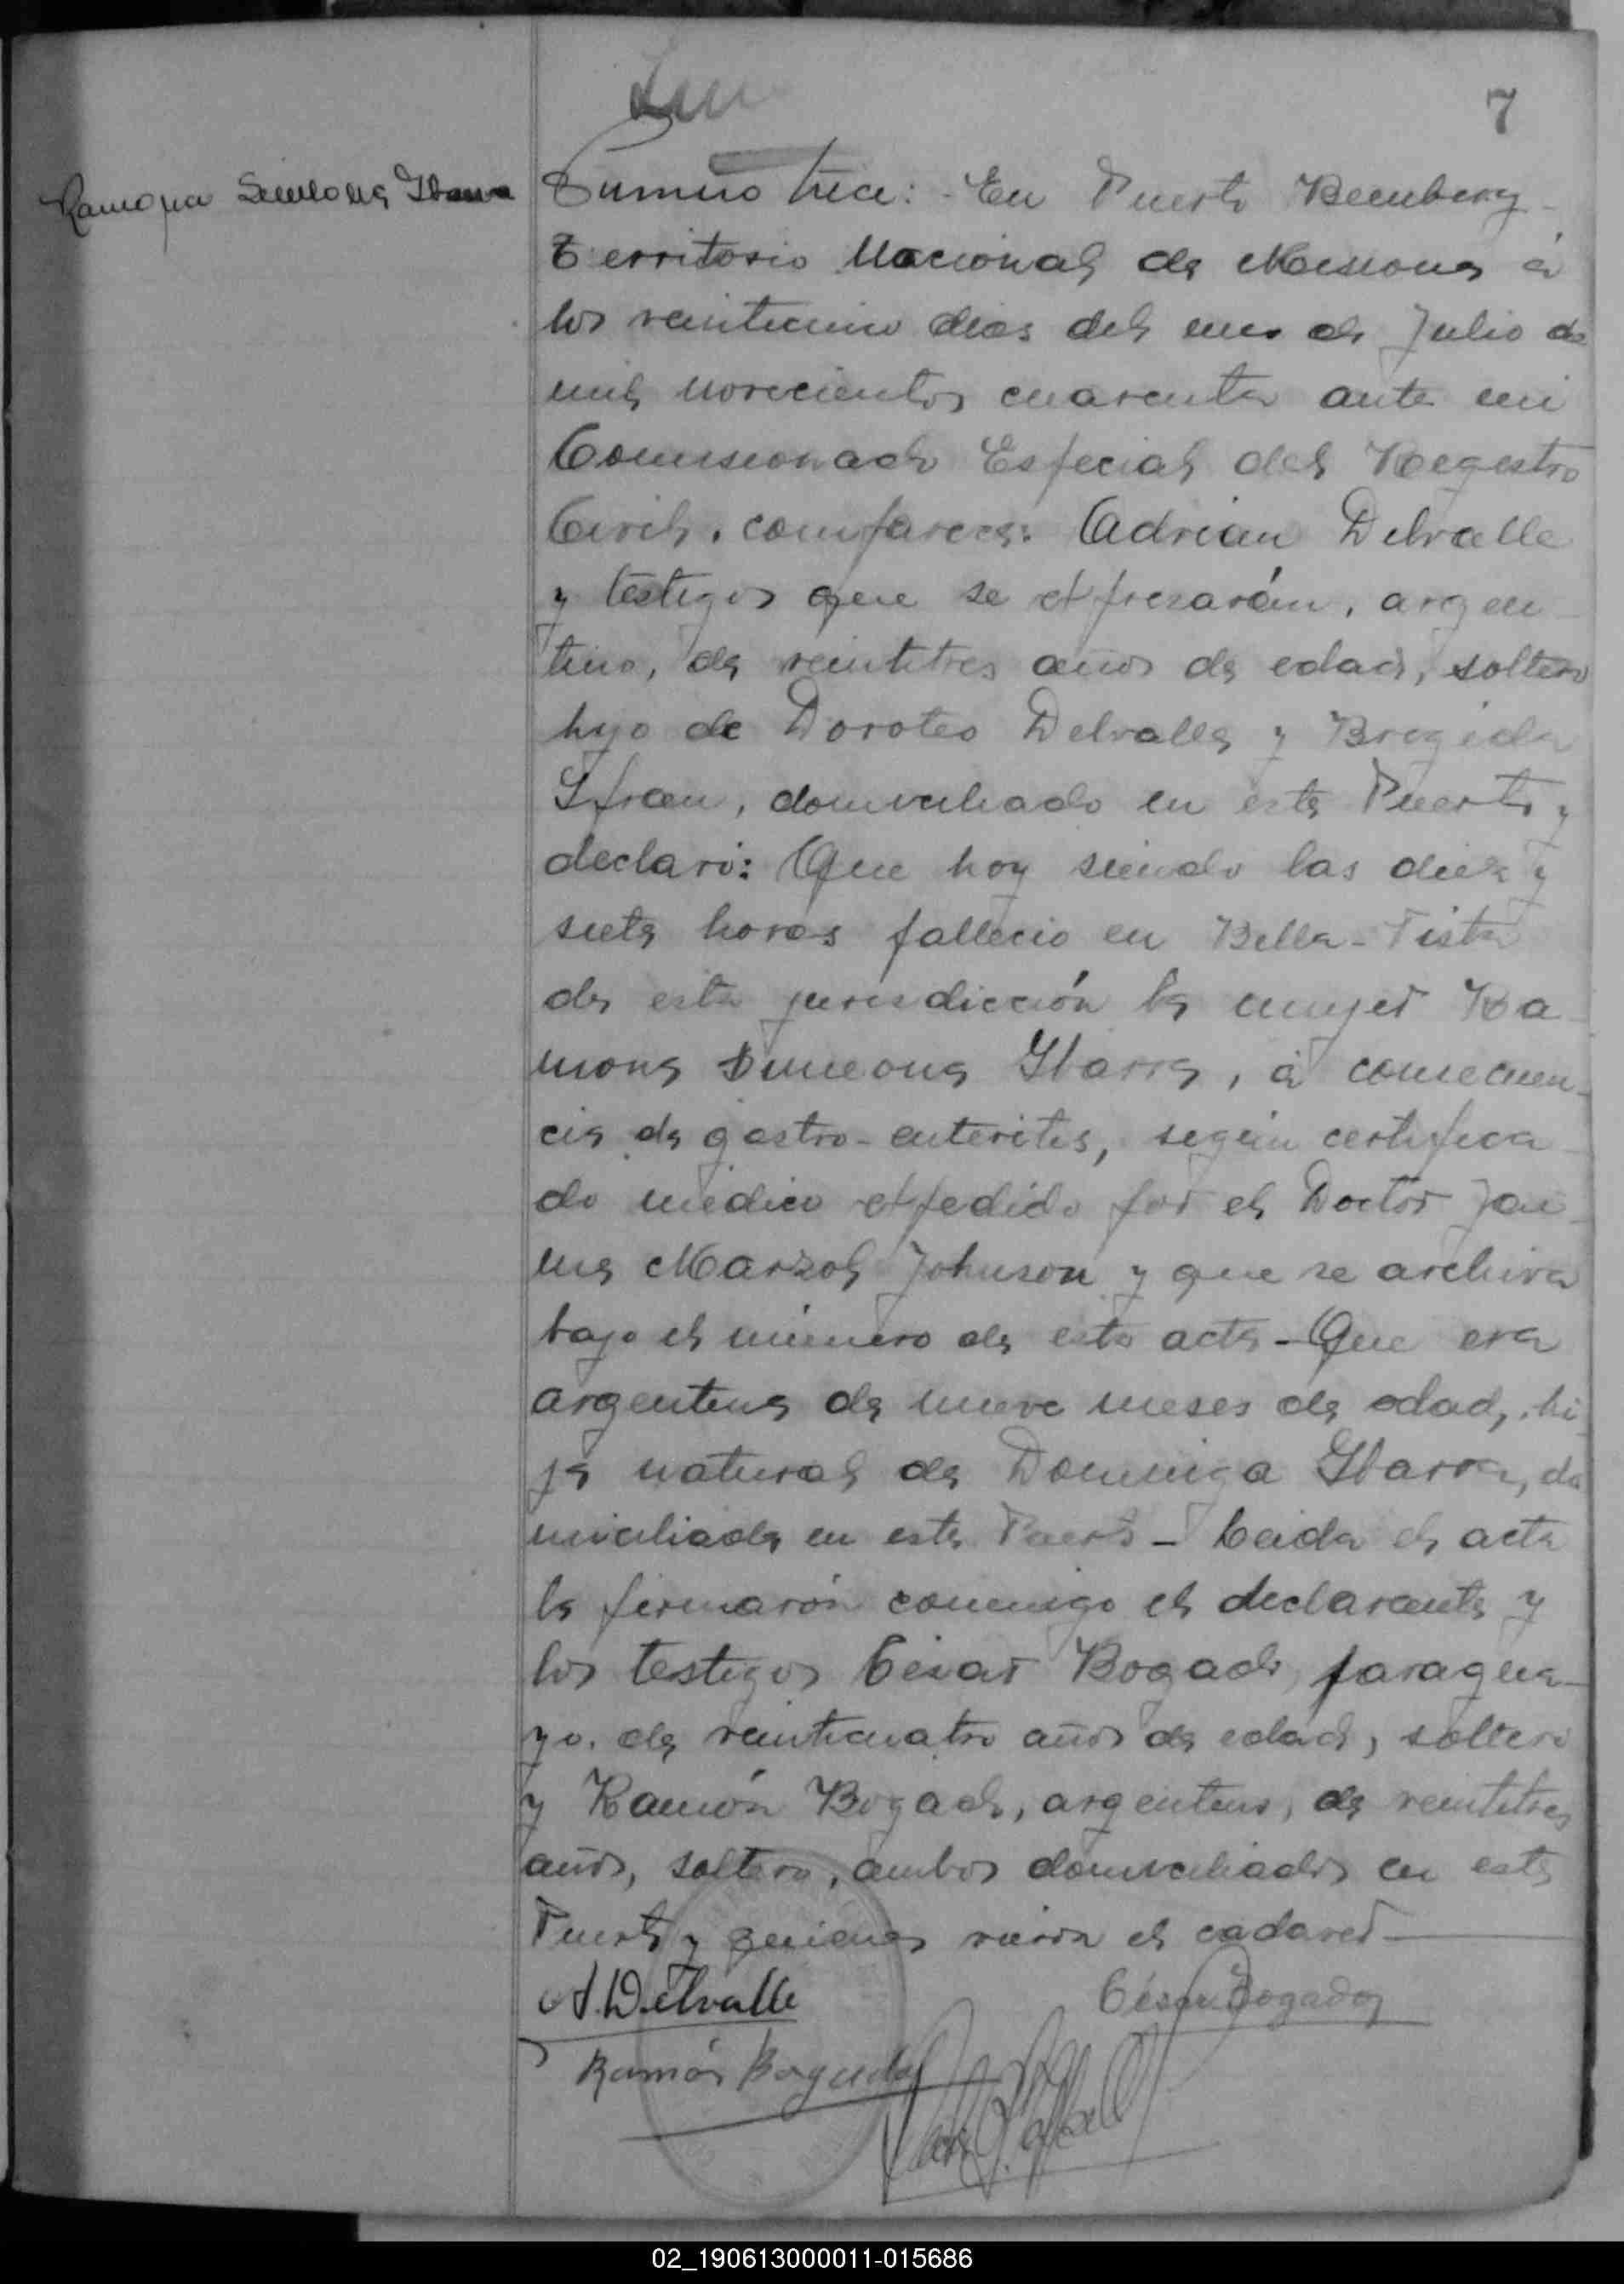 7
Ramona Simeona Ibarra
Número trece: - En Puerto Bemberg -
Territorio Nacional de Misiones á
los veinticinco días del mes de Julio de
mil novecientos cuarenta ante mi
Comisionado Especial del Registro
Civil, comparece: Adrian Delvalle
y testigos que se expresarán, argen-
tino, de veintitres años de edad, soltero
hijo de Doroteo Delvalle y Brigida
Ifran, domiciliado en este Puerto y
declaró: Que hoy siendo las diez y
siete horas falleció en Bella-Vista
de esta jurisdicción la mujer Ra-
mona Simeona Ibarra, á consecuen-
cia de gastro-enteritis, según certifica-
do médico expedido por el Doctor Jai-
me Marzol Johnson y que se archiva
bajo el número de esta acta - Que era
argentina de nueve meses de edad, hi-
ja natural de Dominga Ibarra, do
miciliada en este Puerto - Leida el acta
la firmarón conmigo el declarante y
los testigos César Bogado, paragua-
yo, de veinticuatro años de edad, soltero
y Ramón Bogado, argentino, de veintitres
años, soltero, ambos domiciliados en este
Puerto y quienes vieron el cadaver
A. Delvalle
César Bogado
Ramón Bogado
02_190613000011-015686